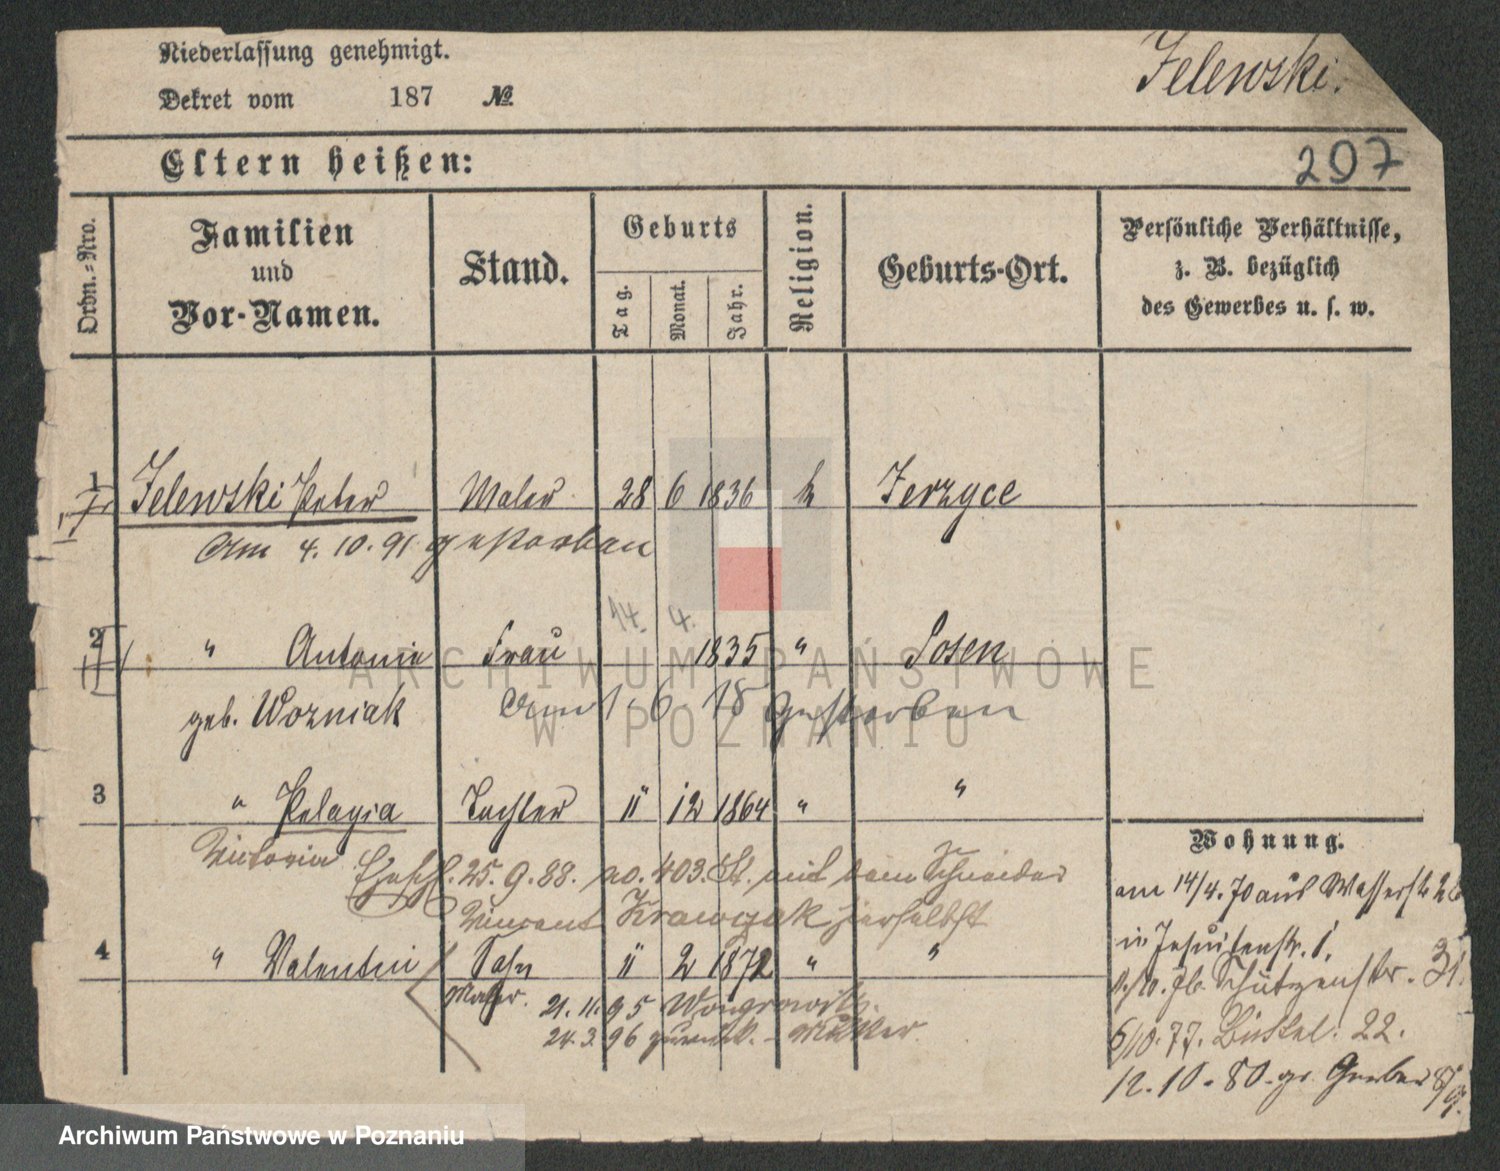 Niederlassung genehmigt.
Dekret vom 187 №
Jelewski.
Eltern heißen:
207
Ordn.-Nro.
Familien und Vor-Namen.
Stand.
Geburts
Tag.
Monat.
Jahr.
Religion.
Geburts-Ort.
Persönliche Verhältnisse,
z. B. bezüglich
des Gewerbes u. s. w.
1 Jelewski Peter Maler 28 6 1836 k Jerzyce
Am 4.10.91 gestorben
14. 4.
2 " Antonie Frau 1835 " Posen
geb. Wozniak Am 1. 6. 18 gestorben
3 " Pelagia Tochter 11 12 1864 " "
Victoria Ehesch. 25.9.88. no. 403. St. mit dem Schneider
Vincent Krawczak hierselbst
4 " Valentin Sohn 11 2 1872 " "
Maler. 21.11.95 Wongrowitz.
24.3.96 zurück. - Mutter
Wohnung.
am 14/4.70 aus Wasserstr 26
in Jesuitenstr. 1.
Schützenstr. 31.
6/10.77. Büttel. 22.
12.10.80. gr. Gerber 8/9.
ARCHIWUM PAŃSTWOWE
W POZNANIU
Archiwum Państwowe w Poznaniu